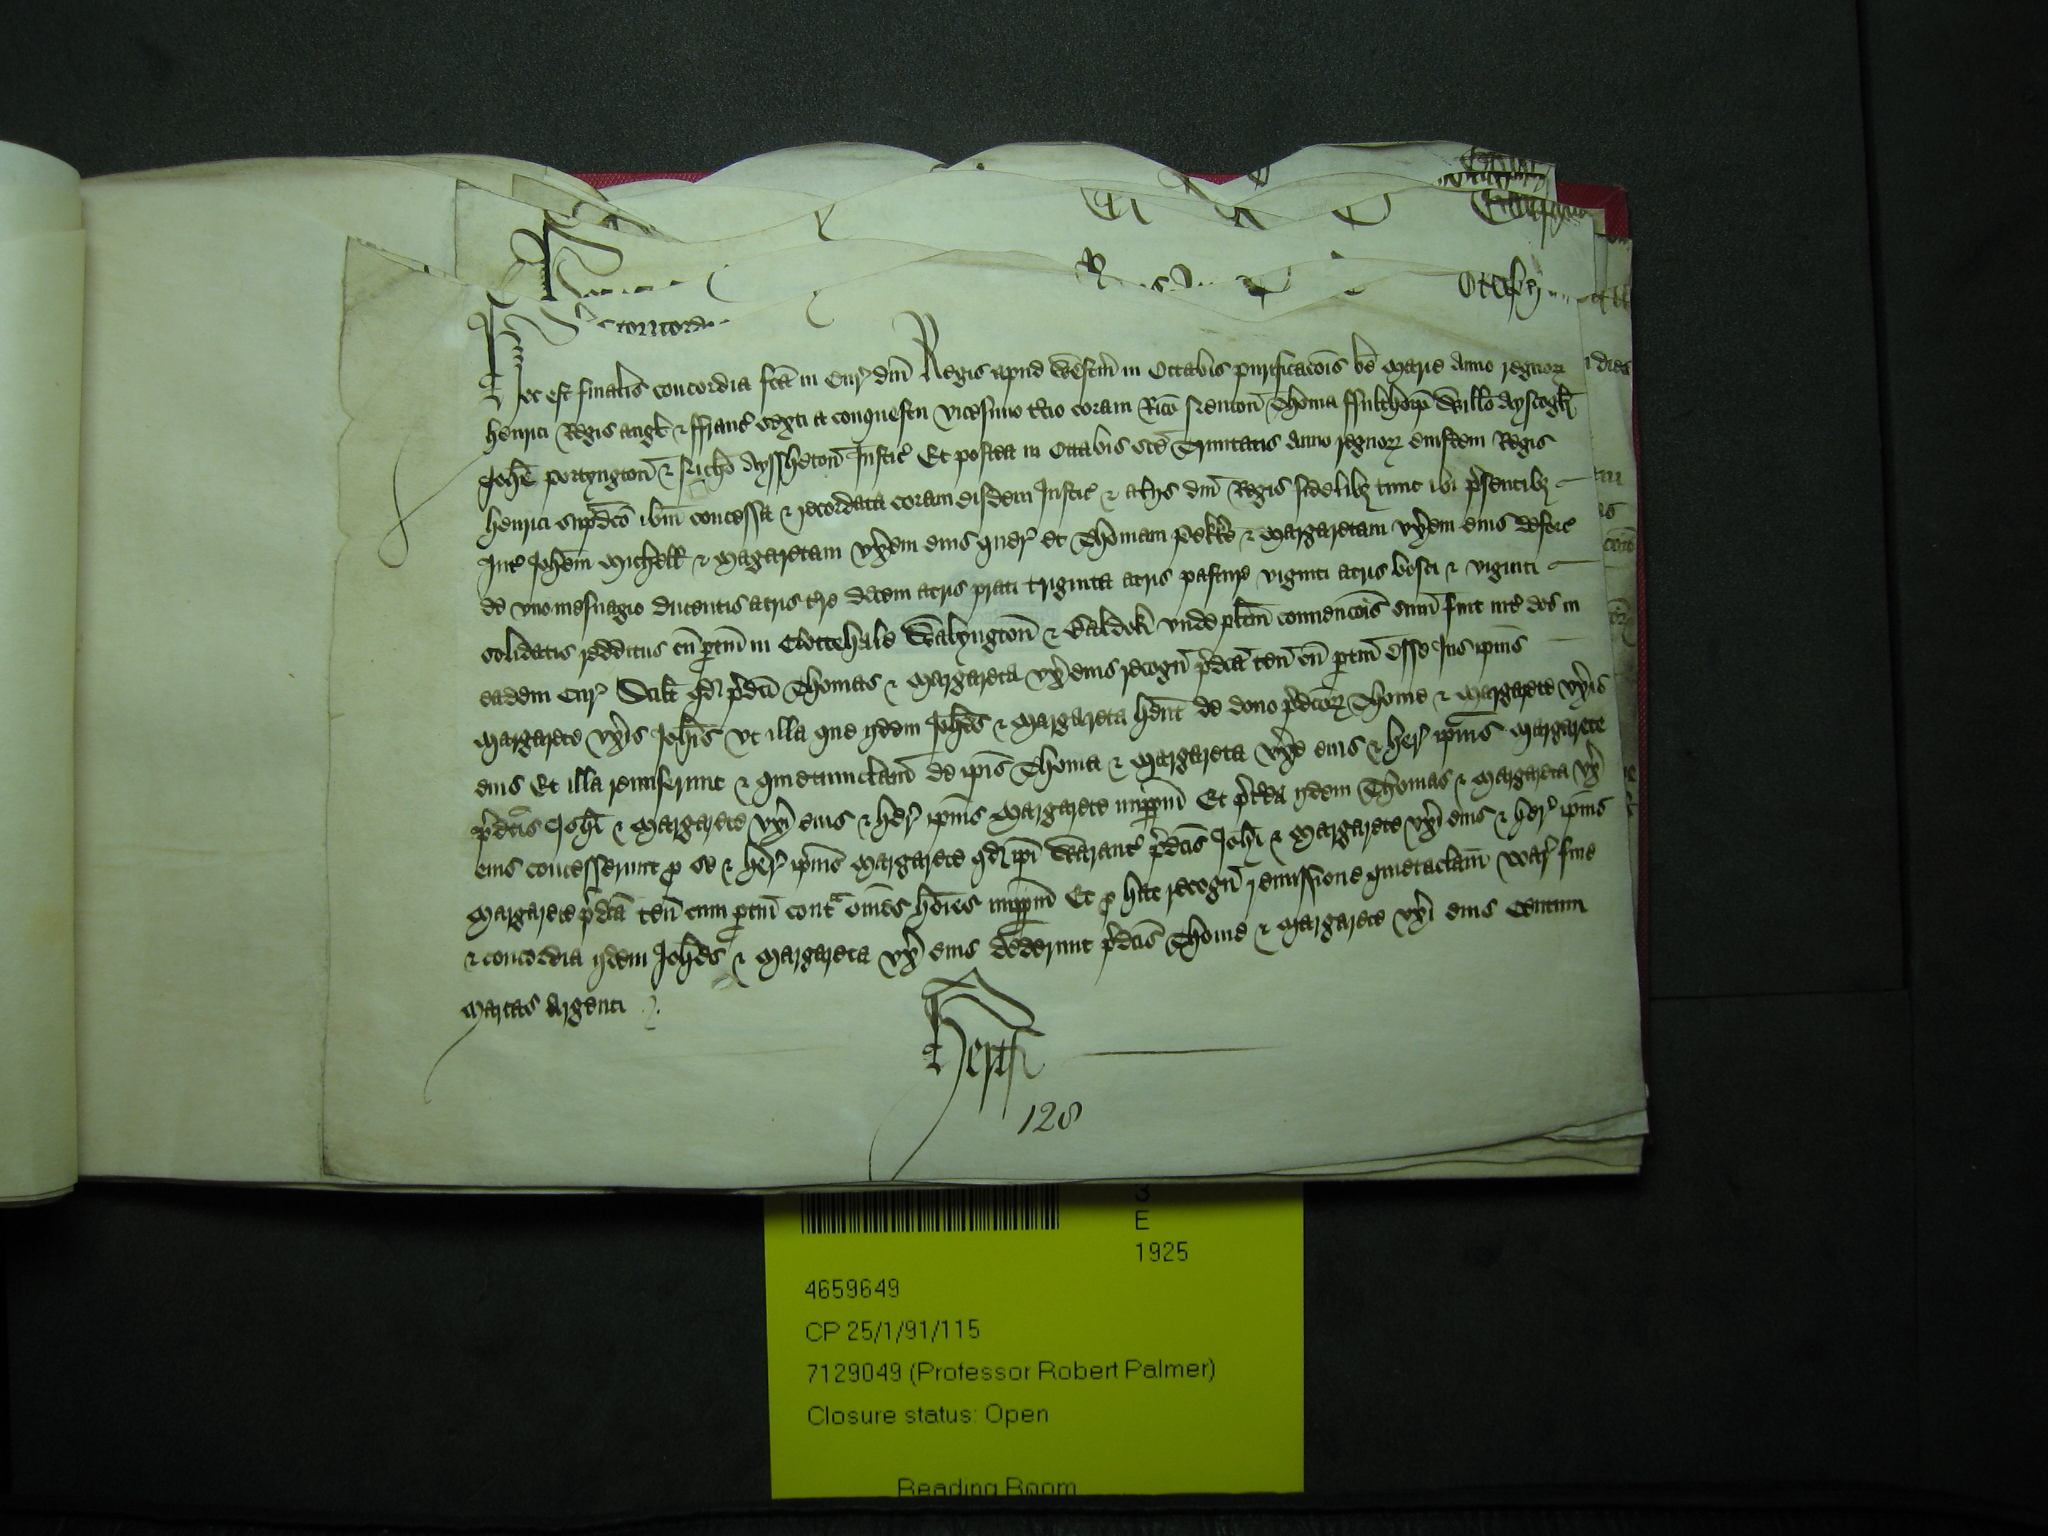 Hec est finalis concordia fca in Cur dni Regis apud Westm in Octabis purificacois be Marie anno regnor
Henrici Regis Angl & ffranc sexti a conquestu vicesimo tcio coram Rico Neuton Thoma ffulthorp Willo Ayscogh
Johe Portyngton & Nicho Ayssheton Justic Et postea in Octabis sce Trinitatis anno regnor eiusdem Regis
Henrici supdco ibm concessa & recordata coram eisdem Justic & aliis dni Regis fidelibz tunc ibi psentibz
Int Johem Michell & Magaretam vxem eius quer et Thomam Pekke & Margaretam vxem eius deforc
de vno mesuagio ducentis acris tre decem acris prati triginta acris pasture viginti acris bosci & viginti
solidatis redditus cu ptin in Clottehale Walyngton & Baldok vnde plitm convencois sum fuit int eos in
eadem Cur Scilt qd pdci Thomas & Margareta vx eius recogn pdca ten cu ptin esse Jus ipius
Margarete vxis Johis vt illa que iidem Johes & Margareta hent de dono pdcor Thome & Margarete vxis
eius Et illa remiserunt & quietumclam de ipis Thoma & Margareta vxe eius & her ipius Margarete
pdcis Johi & Margarete vxi eius & her ipius Margarete imppm Et ptea iidem Thomas & Margareta vx
eius concesserunt p se & her ipius Margarete qd ipi Warant pdcis Johi & Margarete vxi eius & her ipius
Margarete pdca ten cum ptin contra omes hoies imppm Et p hac recogn remissione quietaclam War fine
& concordia iidem Johes & Margareta vx eius dederunt pdcis Thome & Margarete vxi eius Centum
Marcas Argenti
Hertf
128
3
E
1925
4659649
CP 25/1/91/115
7129049 (Professor Robert Palmer)
Closure status: Open
Reading Room